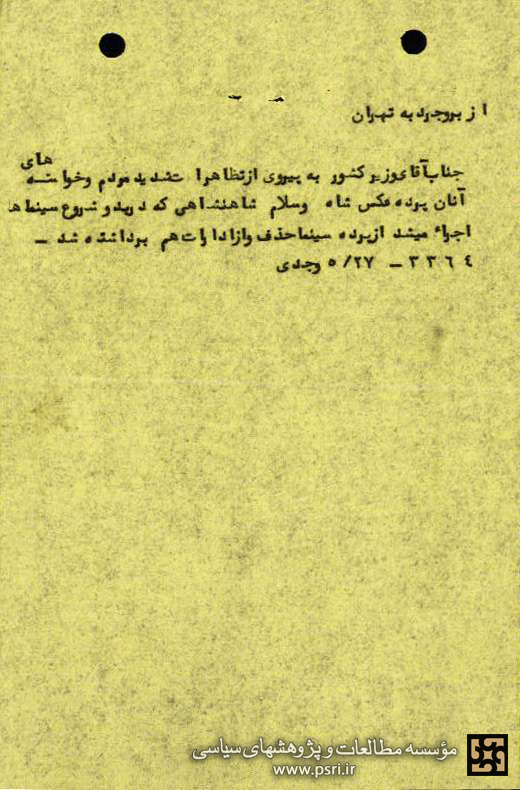 از بروجرد به تهران
جناب آقای وزیر کشور به پیروی از تظاهرات شدید مردم و خواسته های
آنان پرده عکس شاه و سلام شاهنشاهی که در بدو شروع سینماها
اجراء میشد از پرده سینما حذف و از ادارات هم برداشته شد –
۳۳۶۴ – ۵/۲۷ وجدی
مؤسسه مطالعات و پژوهشهای سیاسی
www.psri.ir